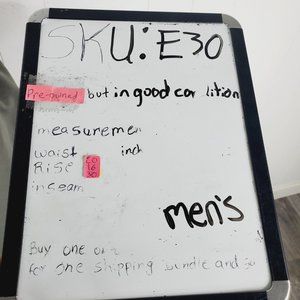 SKU: E30
Pre-owned but in good con ition
measuremen
waist 20 inch
Rise 16
inseam 30
men's
Buy one or
for one shipping bundle and